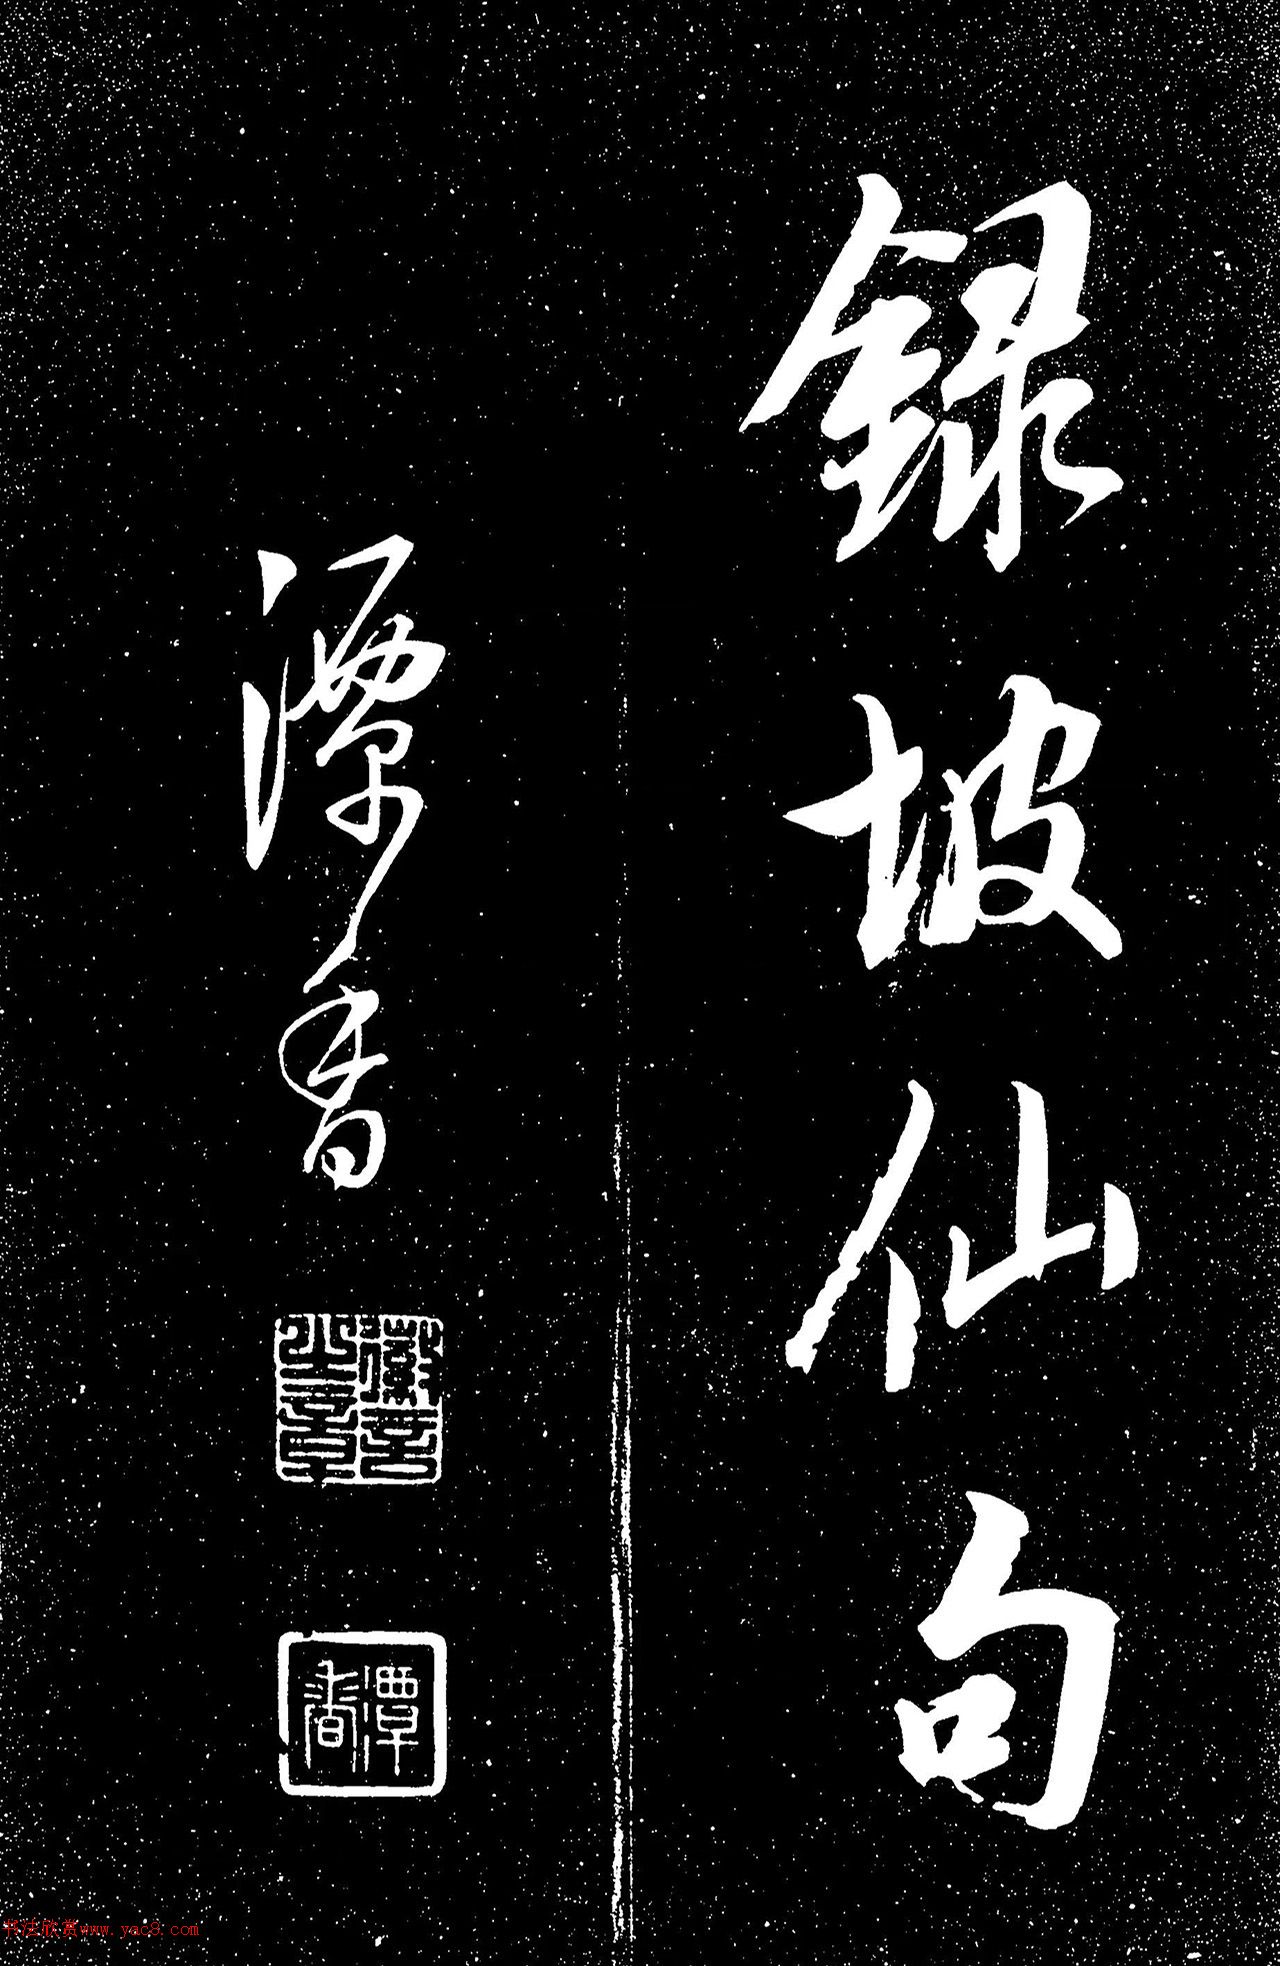 録坡仙句
潭香
潭香
书法欣赏www.yac8.com